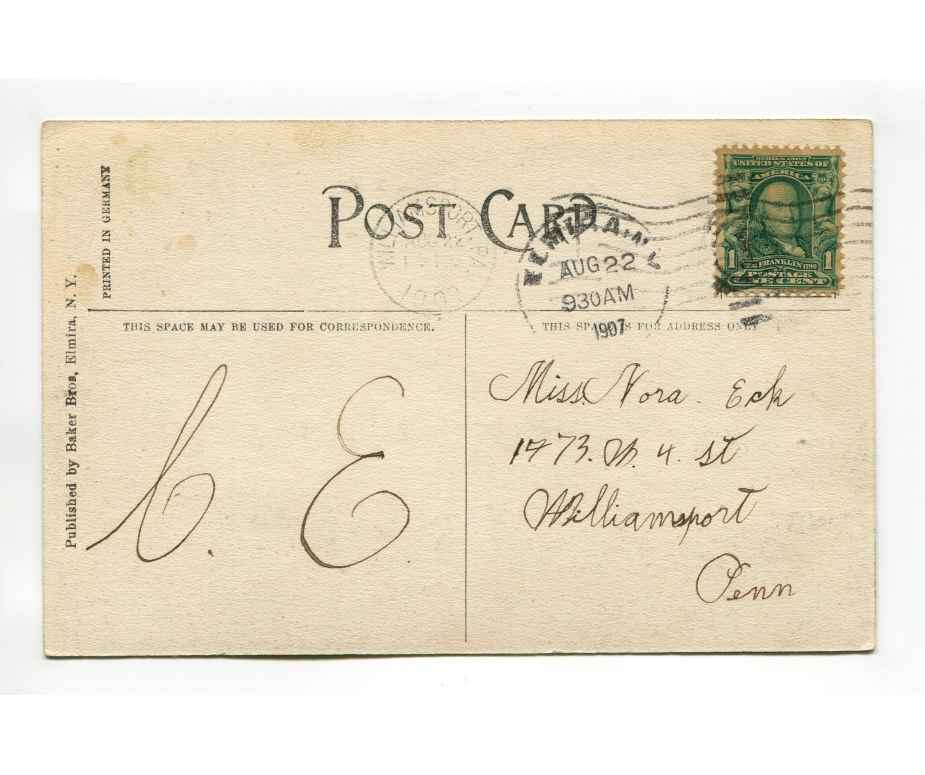 PRINTED IN GERMANY
Published by Baker Bros, Elmira, N. Y.
POST CARD
WILLIAMSPORT PA.
ELMIRA, N.Y.
AUG 22
930 AM
1907
SERIES 1902
UNITED STATES OF
AMERICA
1 FRANKLIN 1790 1
POSTAGE
ONE CENT
THIS SPACE MAY BE USED FOR CORRESPONDENCE.
THIS SPACE IS FOR ADDRESS ONLY
C. E.
Miss. Nora. Eck
1473. W. 4. St
Williamsport
Penn